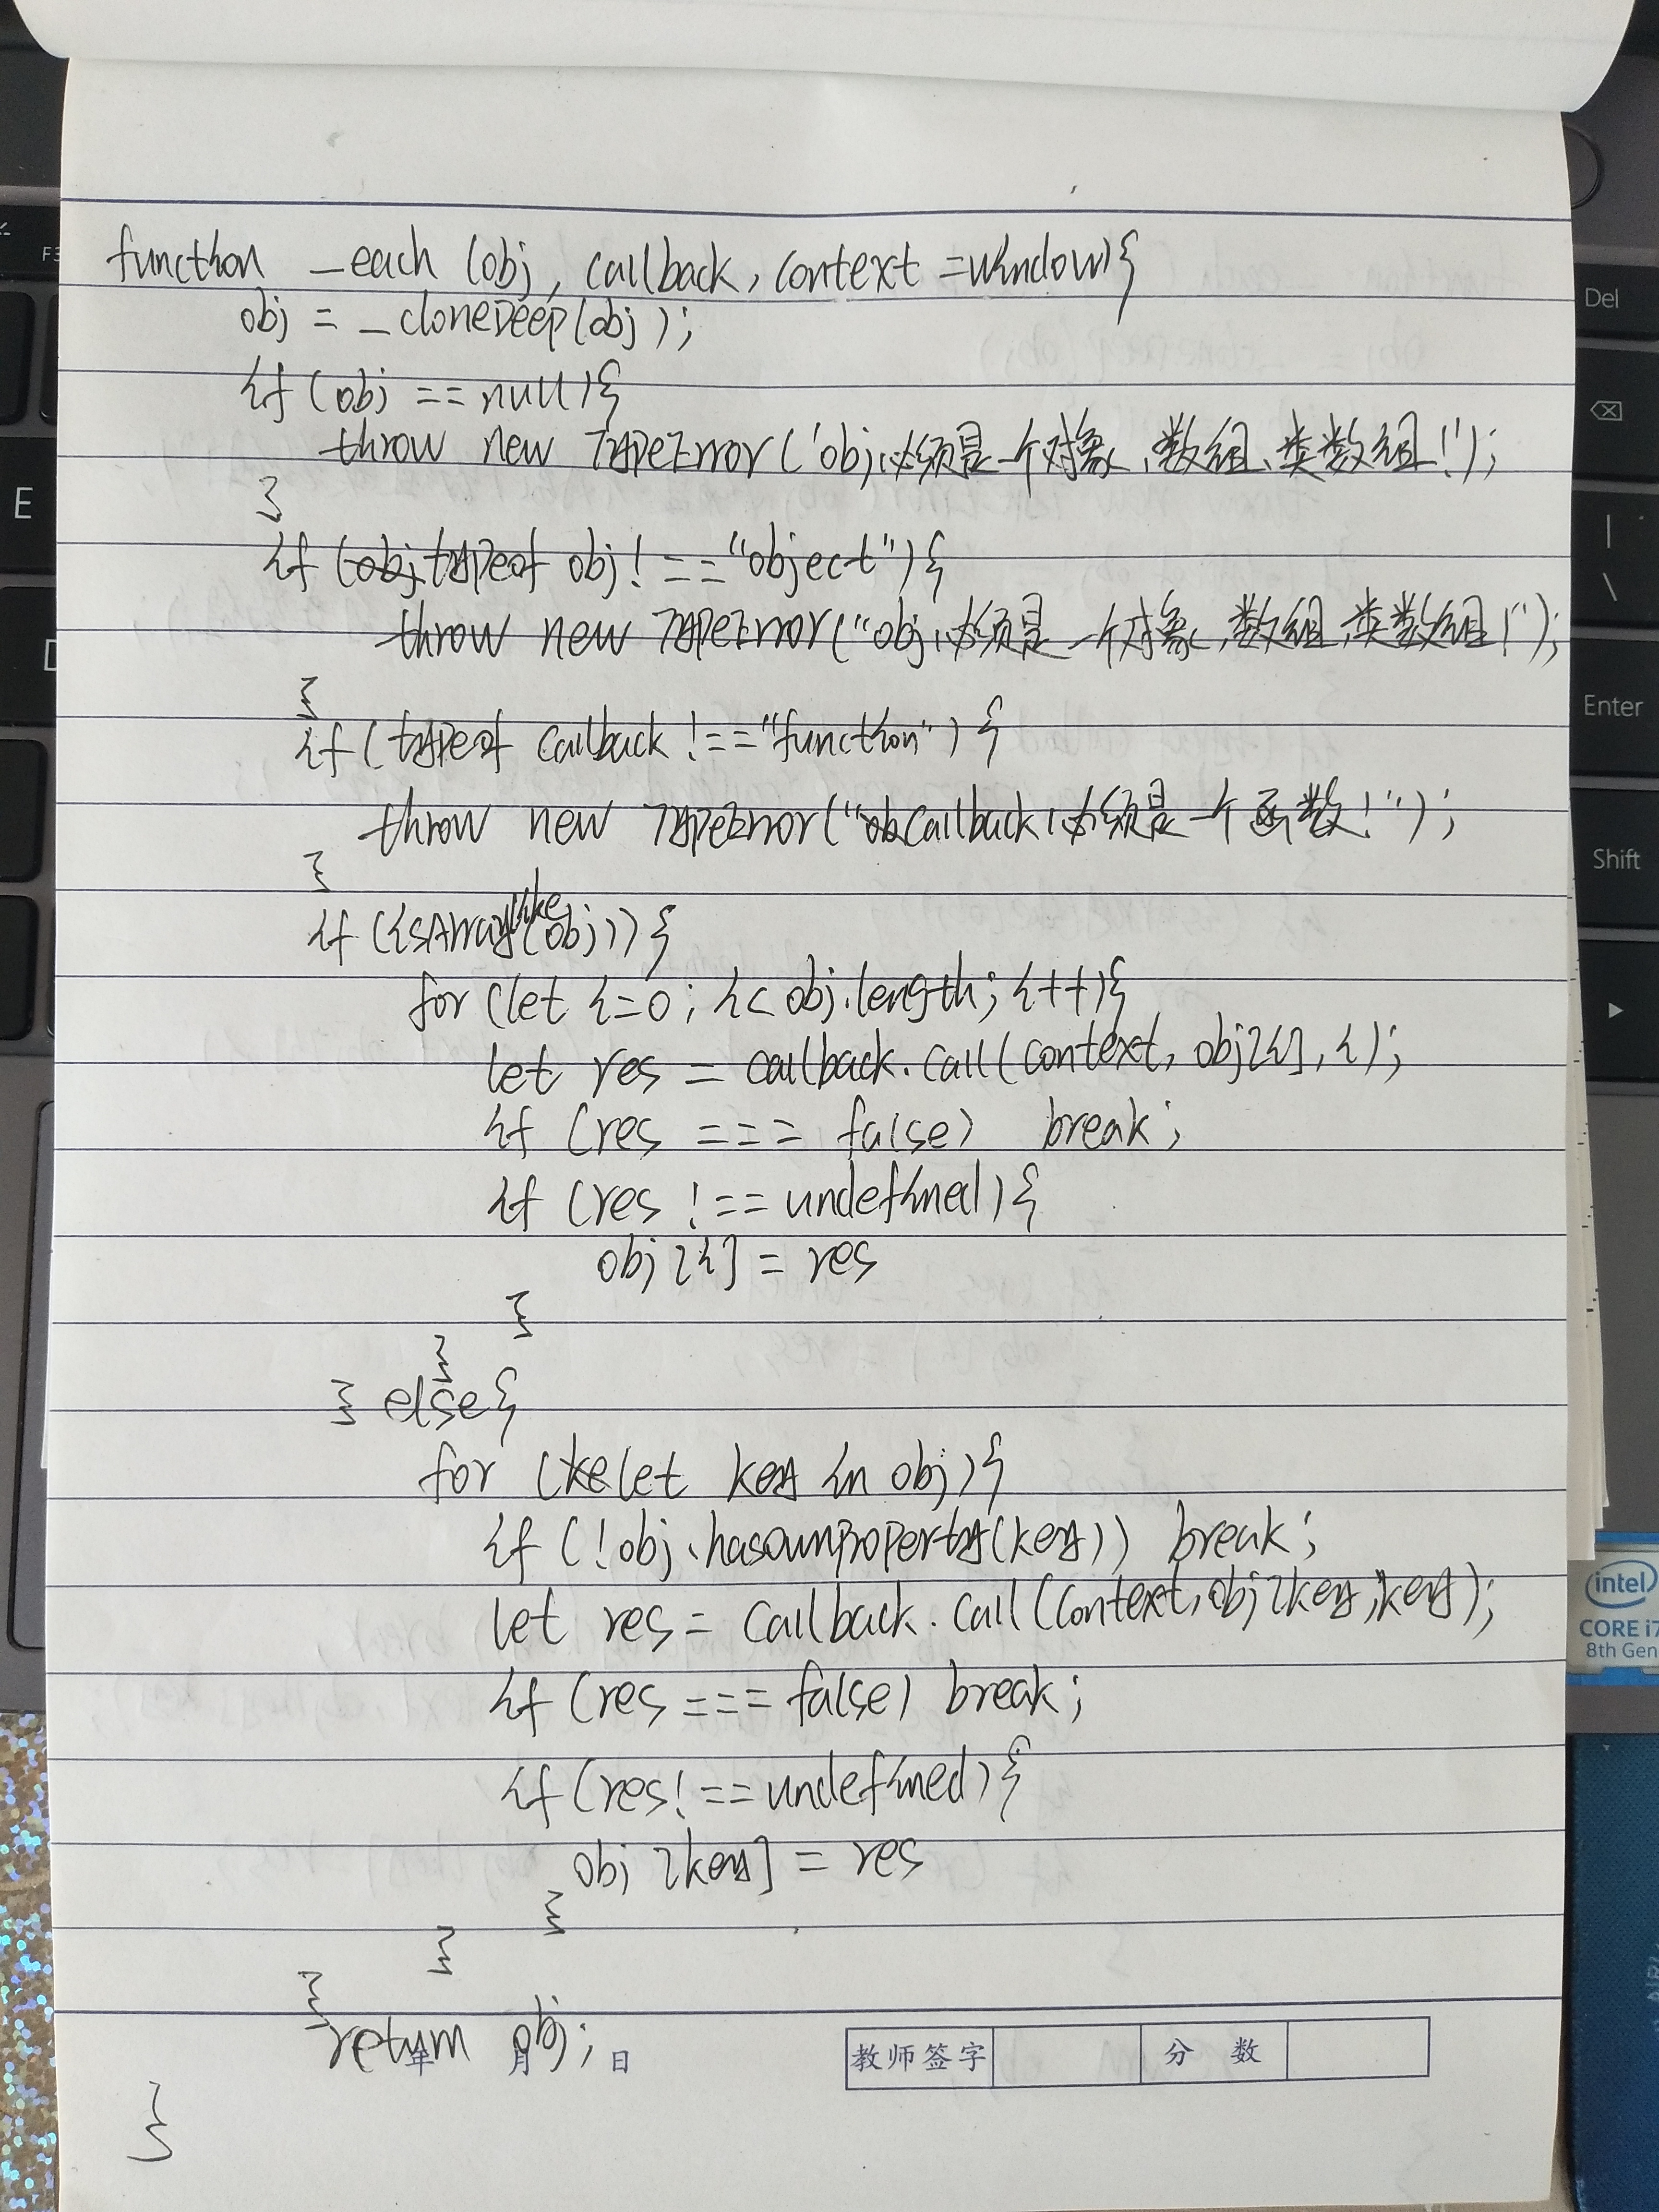 function _each (obj, callback, context =window){
obj = _cloneDeep(obj);
if (obj == null){
throw new TypeError('obj必须是一个对象、数组、类数组!');
}
if (obj typeof obj! =="object"){
throw new TypeError("obj必须是一个对象、数组、类数组!");
}
if (typeof callback !=="function") {
throw new TypeError("obcallback必须是一个函数!");
}
if (isArraylike(obj)){
for (let i=0; i< obj.length; i++){
let res = callback.call(context, obj[i], i);
if (res === false) break;
if (res !== undefined){
obj[i] = res
}
}
} else{
for (kelet key in obj){
if (!obj.hasownproperty(key)) break;
let res = callback.call(context, obj[key, key);
if (res === false) break;
if (res! ==undefined){
obj [key] = res
}
}
}
return obj;
年 月 日 教师签字 分 数
}
Del
F3
E
D
|
\
Enter
Shift
intel
CORE i7
8th Gen